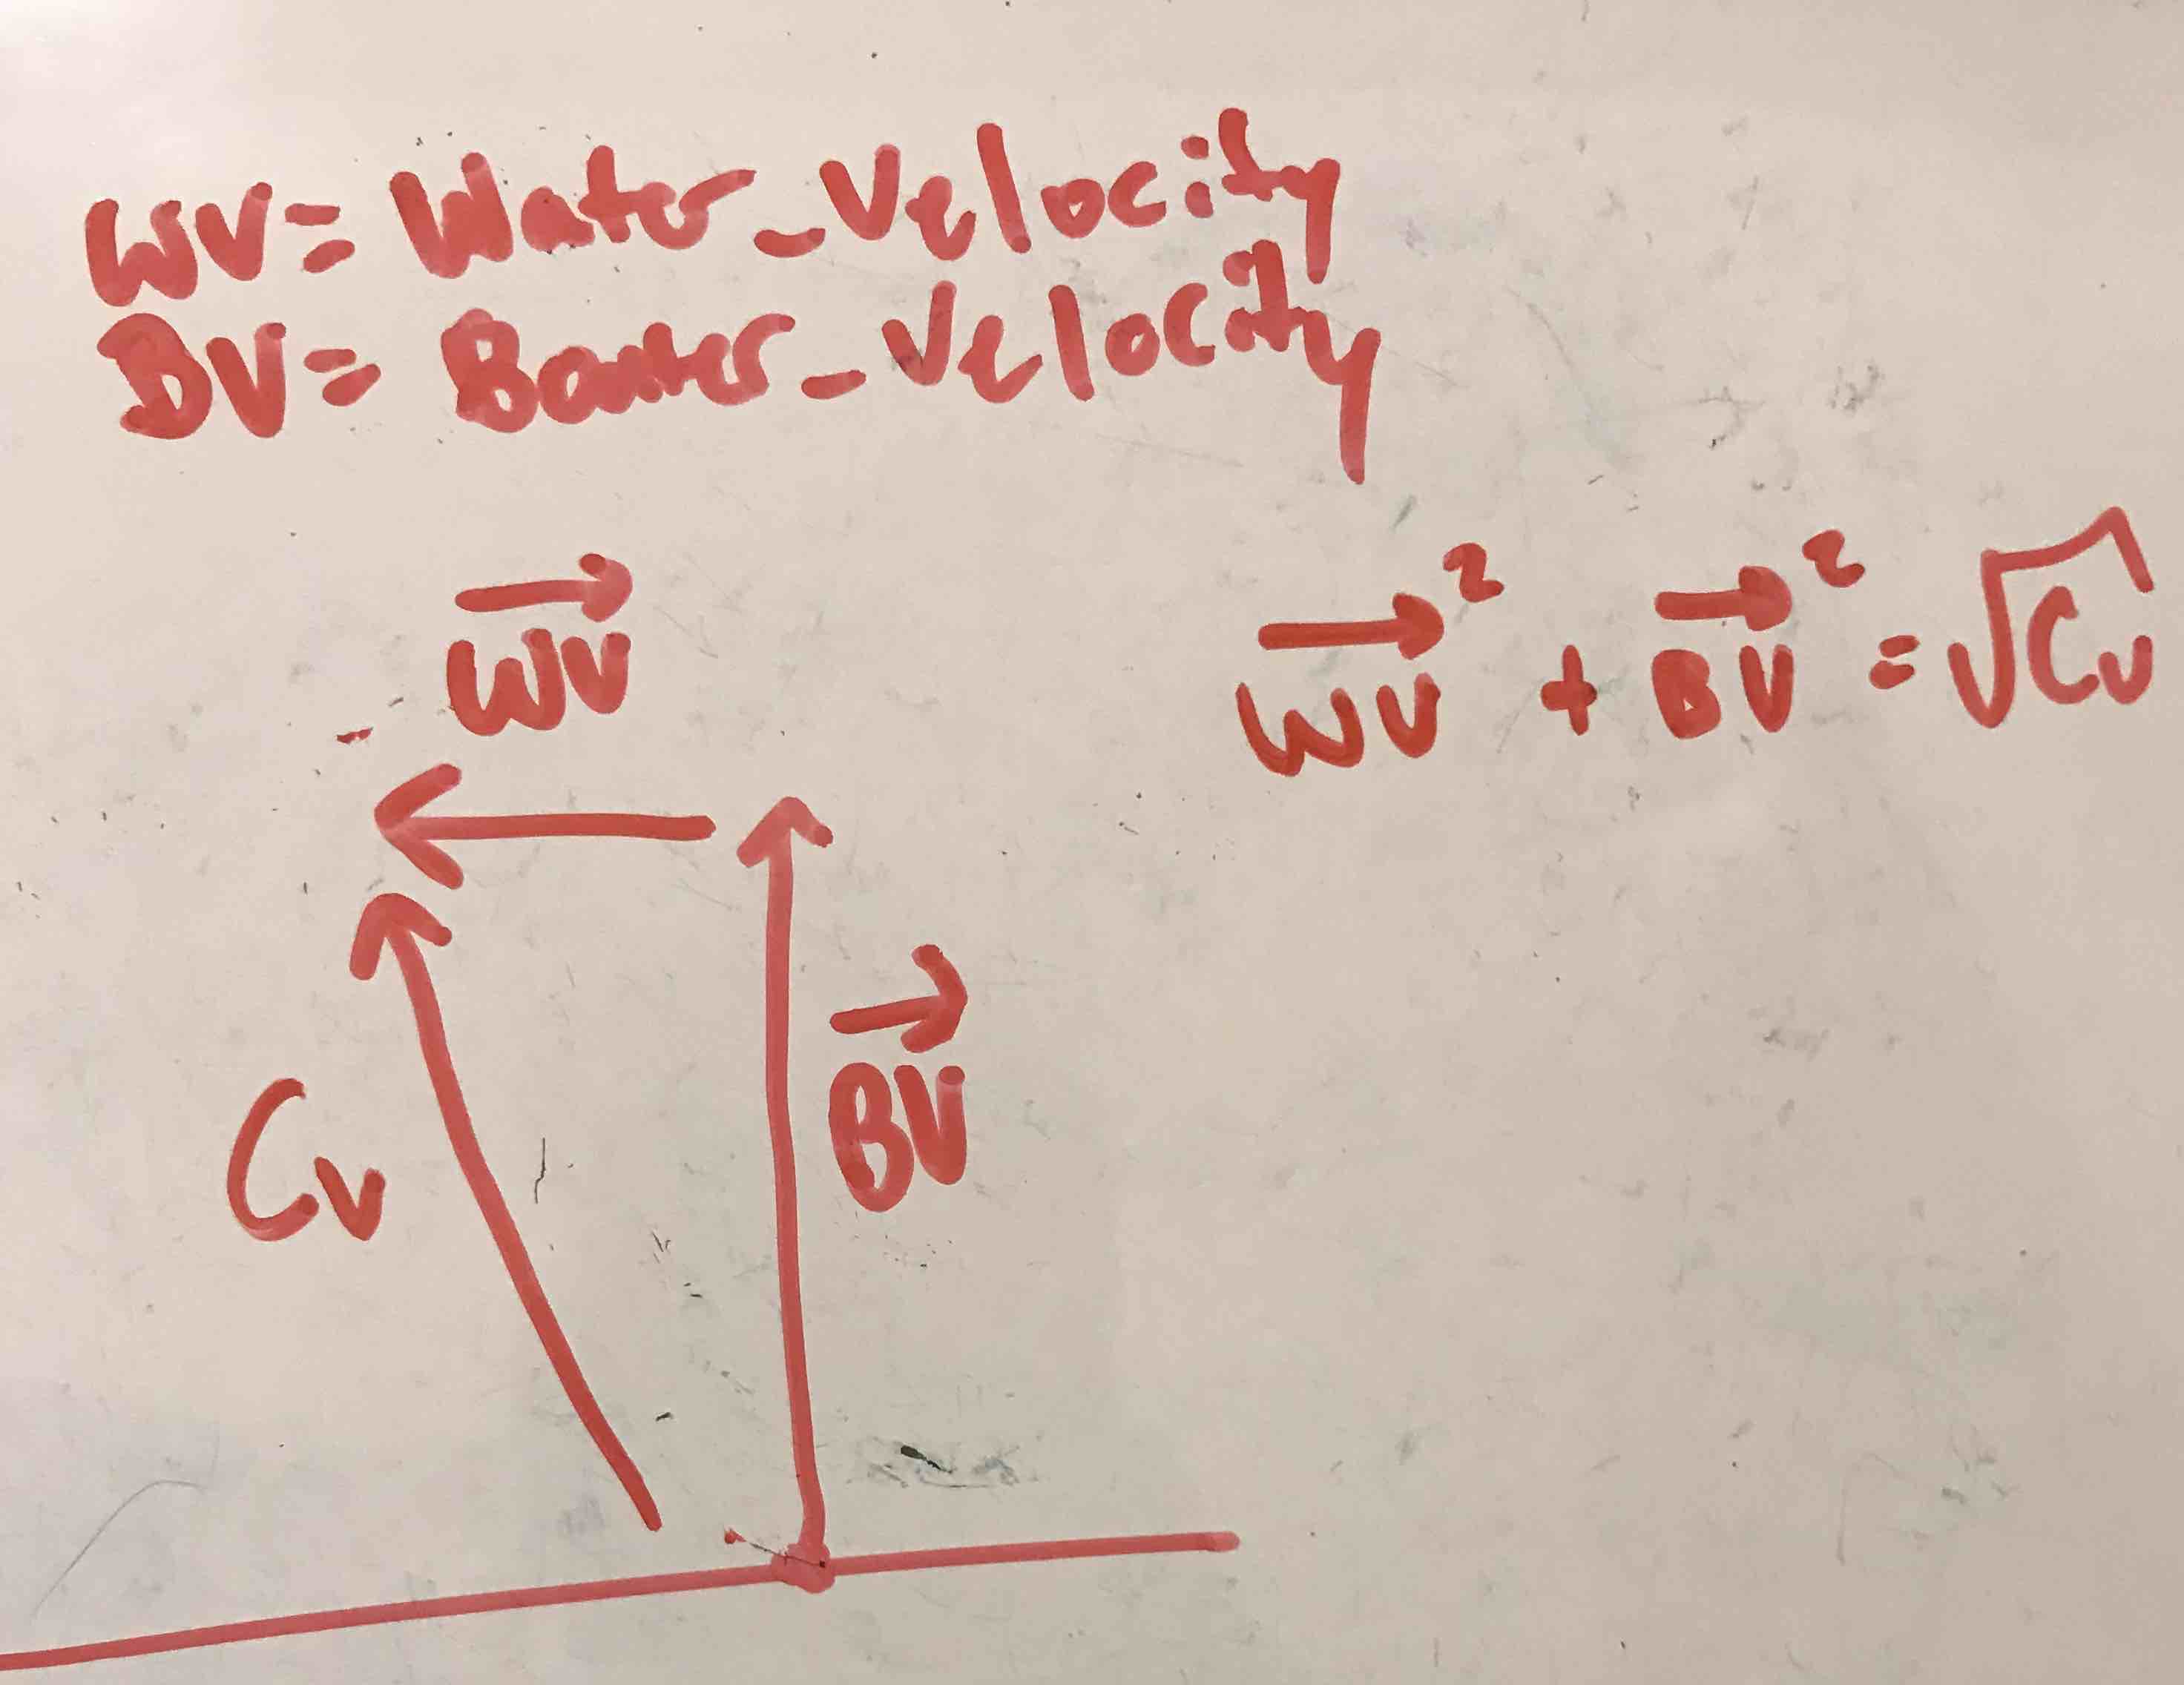 WV = Water_Velocity
BV = Boater_Velocity
WV
WV² + BV² = √Cv
BV
Cv